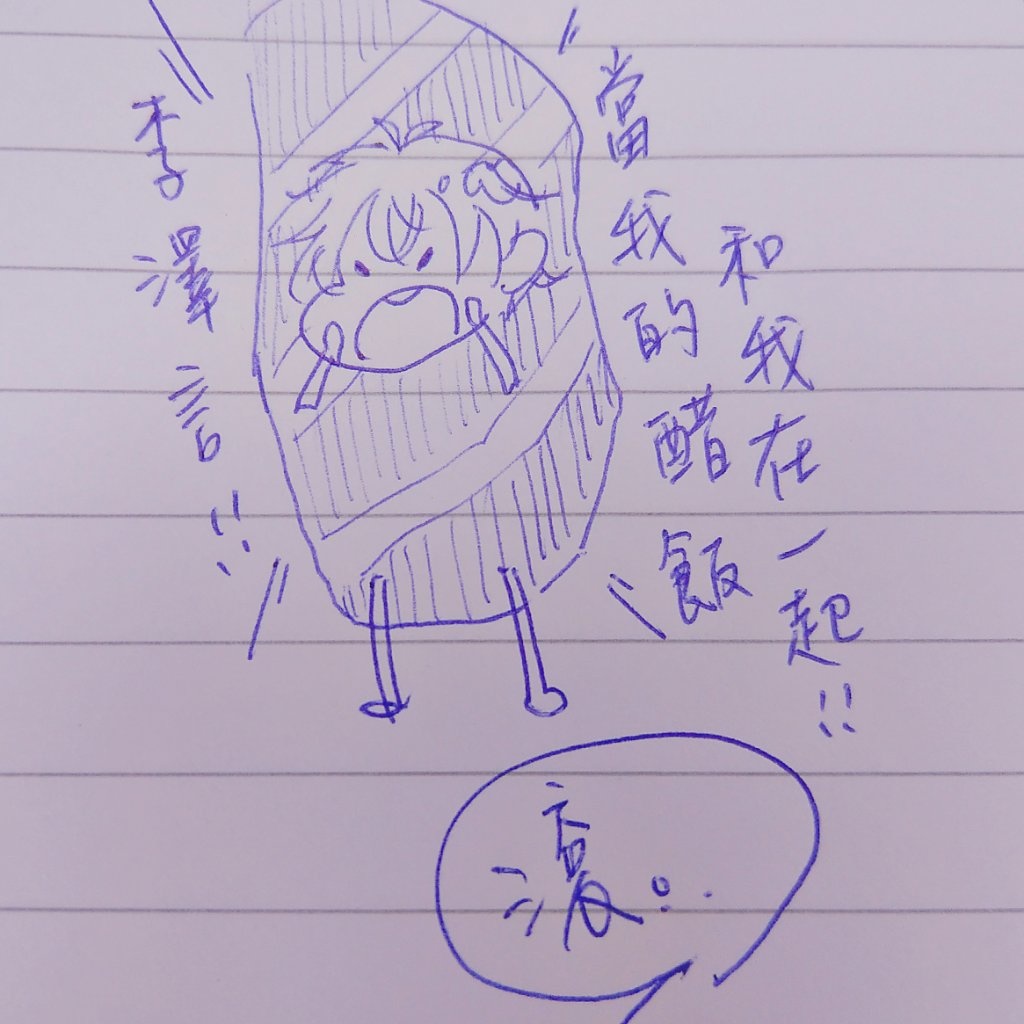 李澤言!!
當我的醋飯
和我在一起!!
滾。